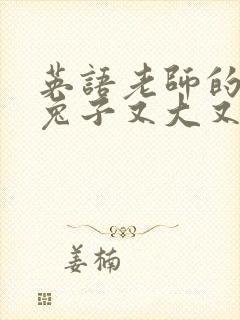 英語老師的
兔子又大又
姜楠